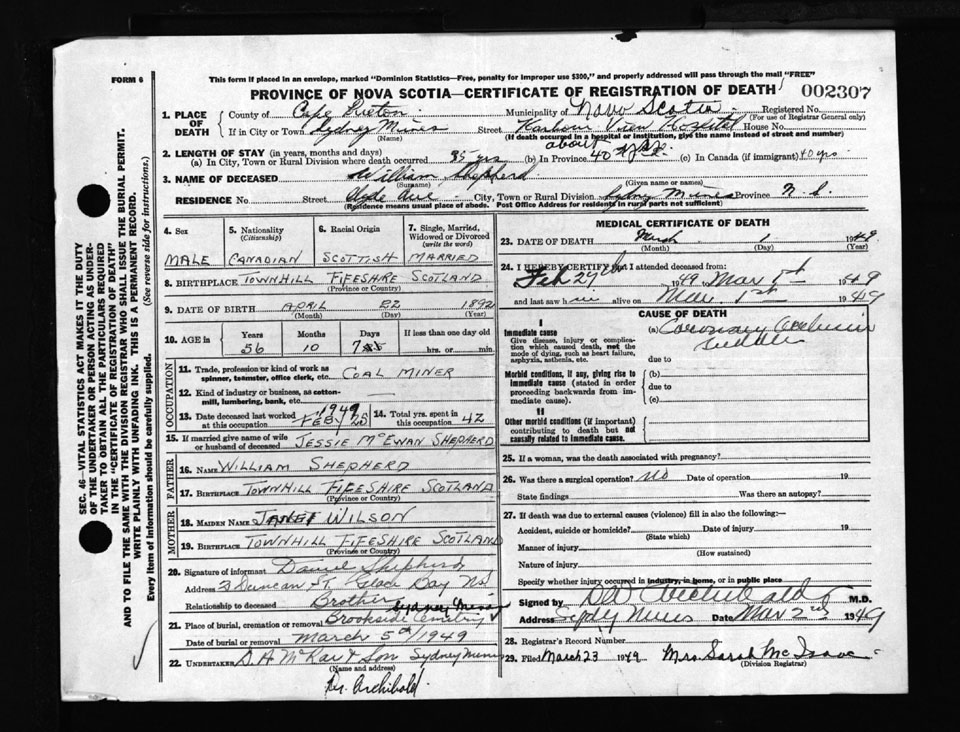 FORM 6
This form if placed in an envelope, marked "Dominion Statistics—Free, penalty for improper use $300," and properly addressed will pass through the mail "FREE"
PROVINCE OF NOVA SCOTIA—CERTIFICATE OF REGISTRATION OF DEATH 002307
1. PLACE OF DEATH County of Cape Breton Municipality of Nova Scotia Registered No.
(For use of Registrar General only)
If in City or Town Sydney Mines Street Harbour View Hospital House No.
(Name) (If death occurred in a hospital or institution, give the name instead of street and number)
2. LENGTH OF STAY (in years, months and days)
(a) In City, Town or Rural Division where death occurred 35 yrs (b) In Province about 40 yrs. (c) In Canada (if immigrant) 40 yrs
3. NAME OF DECEASED William Shepherd
(Surname) (Given name or names)
RESIDENCE No. Street Clyde Ave City, Town or Rural Division Sydney Mines Province N. S.
(Residence means usual place of abode. Post Office Address for residents in rural parts not sufficient)
4. Sex 5. Nationality (Citizenship) 6. Racial Origin 7. Single, Married, Widowed or Divorced (write the word)
MALE CANADIAN SCOTTISH MARRIED
8. BIRTHPLACE TOWNHILL FIFESHIRE SCOTLAND
(Province or Country)
9. DATE OF BIRTH APRIL 22 1892
(Month) (Day) (Year)
10. AGE in Years Months Days If less than one day old
56 10 7 hrs. or min.
OCCUPATION
11. Trade, profession or kind of work as spinner, teamster, office clerk, etc. COAL MINER
12. Kind of industry or business, as cotton-mill, lumbering, bank, etc.
13. Date deceased last worked at this occupation 1949 FEBY 25 14. Total yrs. spent in this occupation 42
15. If married give name of wife or husband of deceased JESSIE McEWAN SHEPHERD
FATHER
16. NAME WILLIAM SHEPHERD
17. BIRTHPLACE TOWNHILL FIFESHIRE SCOTLAND
(Province or Country)
MOTHER
18. MAIDEN NAME JANET WILSON
19. BIRTHPLACE TOWNHILL FIFESHIRE SCOTLAND
(Province or Country)
20. Signature of informant Daniel Shepherd
Address 3 Duncan St. Glace Bay NS
Relationship to deceased Brother
Sydney Mines
21. Place of burial, cremation or removal Brookside Cemetery
Date of burial or removal March 5th 1949
22. UNDERTAKER D. A. McKay & Son Sydney Mines
(Name and address)
Dr. Archibald.
MEDICAL CERTIFICATE OF DEATH
23. DATE OF DEATH March 1 1949
(Month) (Day) (Year)
24. I HEREBY CERTIFY that I attended deceased from:
Feb 27 1949 to Mar 1st 1949
and last saw him alive on Mar. 1st 1949
CAUSE OF DEATH
I
Immediate cause (a) Coronary Occlusion
Give disease, injury or complication which caused death, not the mode of dying, such as heart failure, asphyxia, asthenia, etc.
due to
Morbid conditions, if any, giving rise to immediate cause (stated in order proceeding backwards from immediate cause).
(b)
due to
(c)
II
Other morbid conditions (if important) contributing to death but not causally related to immediate cause.
25. If a woman, was the death associated with pregnancy?
26. Was there a surgical operation? No Date of operation 19
State findings Was there an autopsy?
27. If death was due to external causes (violence) fill in also the following:—
Accident, suicide or homicide? Date of injury 19
(State which)
Manner of injury
(How sustained)
Nature of injury
Specify whether injury occurred in industry, in home, or in public place
Signed by Archibald M.D.
Address Sydney Mines Date Mar 2nd 1949
28. Registrar's Record Number
29. Filed March 23 1949 Mrs. Sarah McIsaac
(Division Registrar)
SEC. 46—VITAL STATISTICS ACT MAKES IT THE DUTY
OF THE UNDERTAKER OR PERSON ACTING AS UNDER-
TAKER TO OBTAIN ALL THE PARTICULARS REQUIRED
IN THE "CERTIFICATE OF REGISTRATION OF DEATH"
AND TO FILE THE SAME WITH THE DIVISION REGISTRAR WHO SHALL ISSUE THE BURIAL PERMIT.
WRITE PLAINLY WITH UNFADING INK. THIS IS A PERMANENT RECORD.
Every item of information should be carefully supplied. (See reverse side for instructions.)